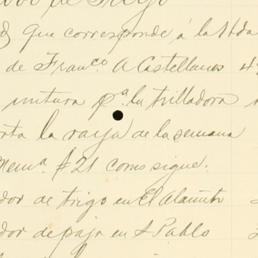 de Trigo
que corresponde á la Hda
de Franco. A Castellanos
untura pa. la trilladora
rta la raya de la semana
Mema. #21 como sigue.
dor de trigo en El Alamito
dor de paja en S Pablo